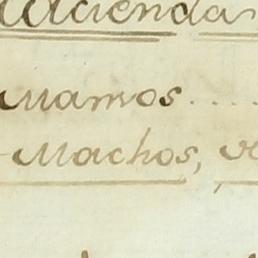 Hacienda
Mamos....
Machos,